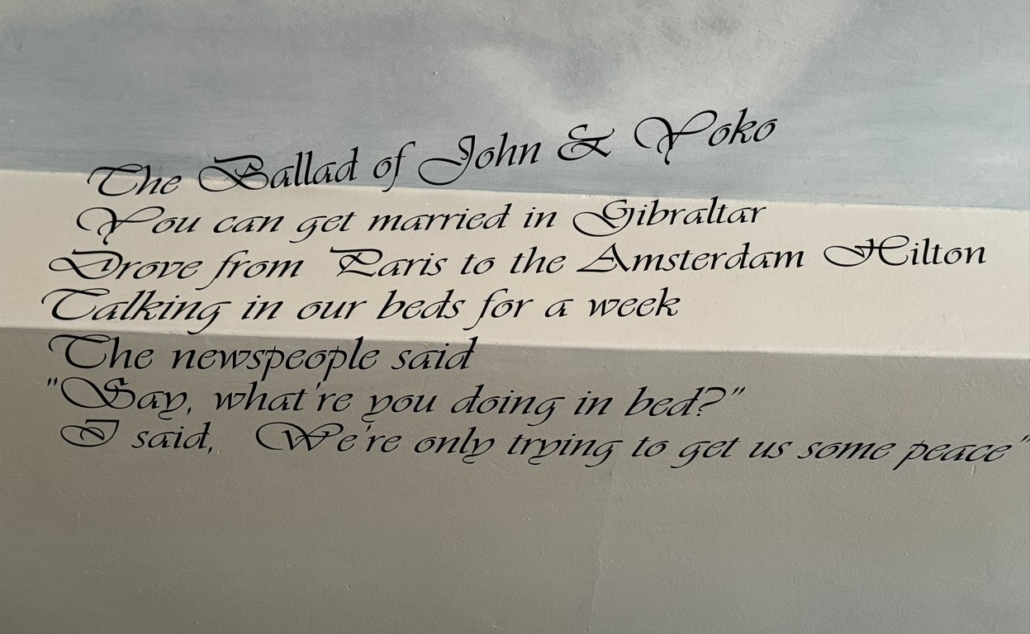 The Ballad of John & Yoko
You can get married in Gibraltar
Drove from Paris to the Amsterdam Hilton
Talking in our beds for a week
The newspeople said
"Say, what're you doing in bed?"
I said, We're only trying to get us some peace"